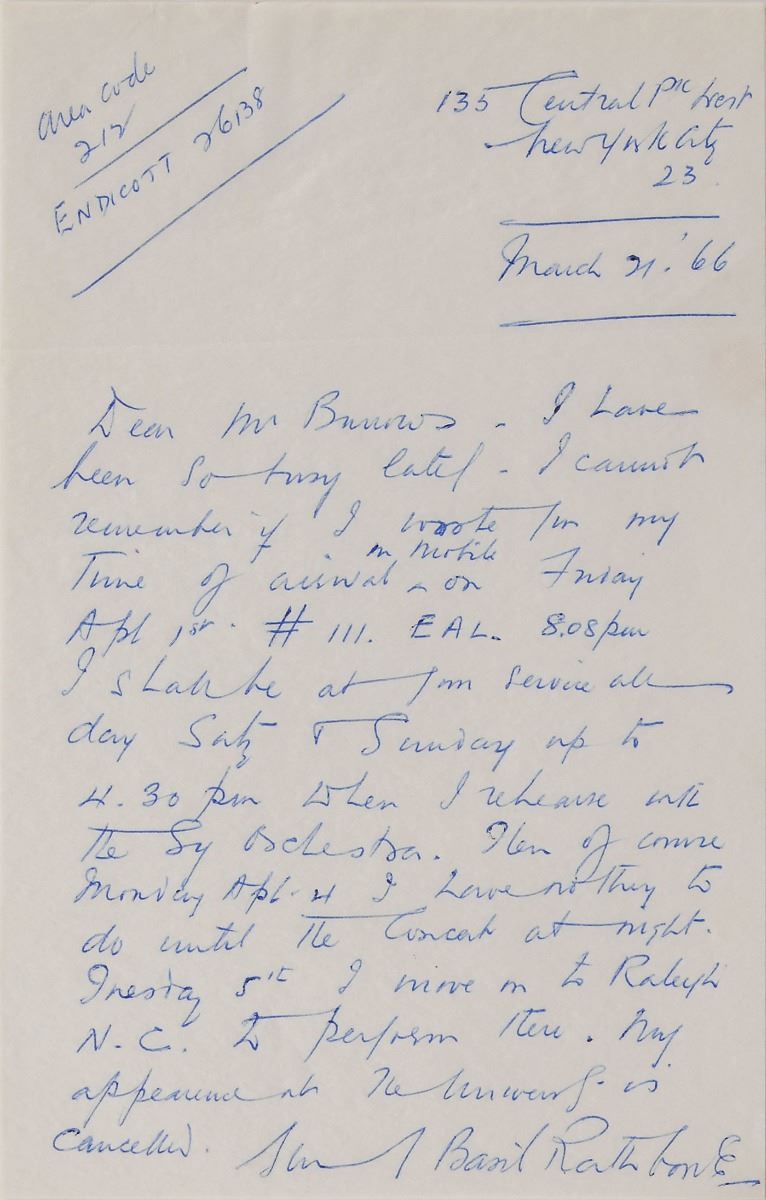 area code
212
ENDICOTT 26138
135 Central Pk West
New York City
23.
March 21. '66
Dear Mr Burrows - I have
been so busy lately - I cannot
remember if I wrote you my
time of arrival in Mobile on Friday
Apl 1st. # 111. EAL. 8.08 pm
I shall be at your service all
day Saty & Sunday up to
4.30 pm when I rehearse with
the Sy Orchestra. Then of course
Monday Apl. 4 I have nothing to
do until the Concert at night.
Tuesday 5th I move on to Raleigh
N.C. to perform there. My
appearance at the University is
cancelled. Basil Rathbone